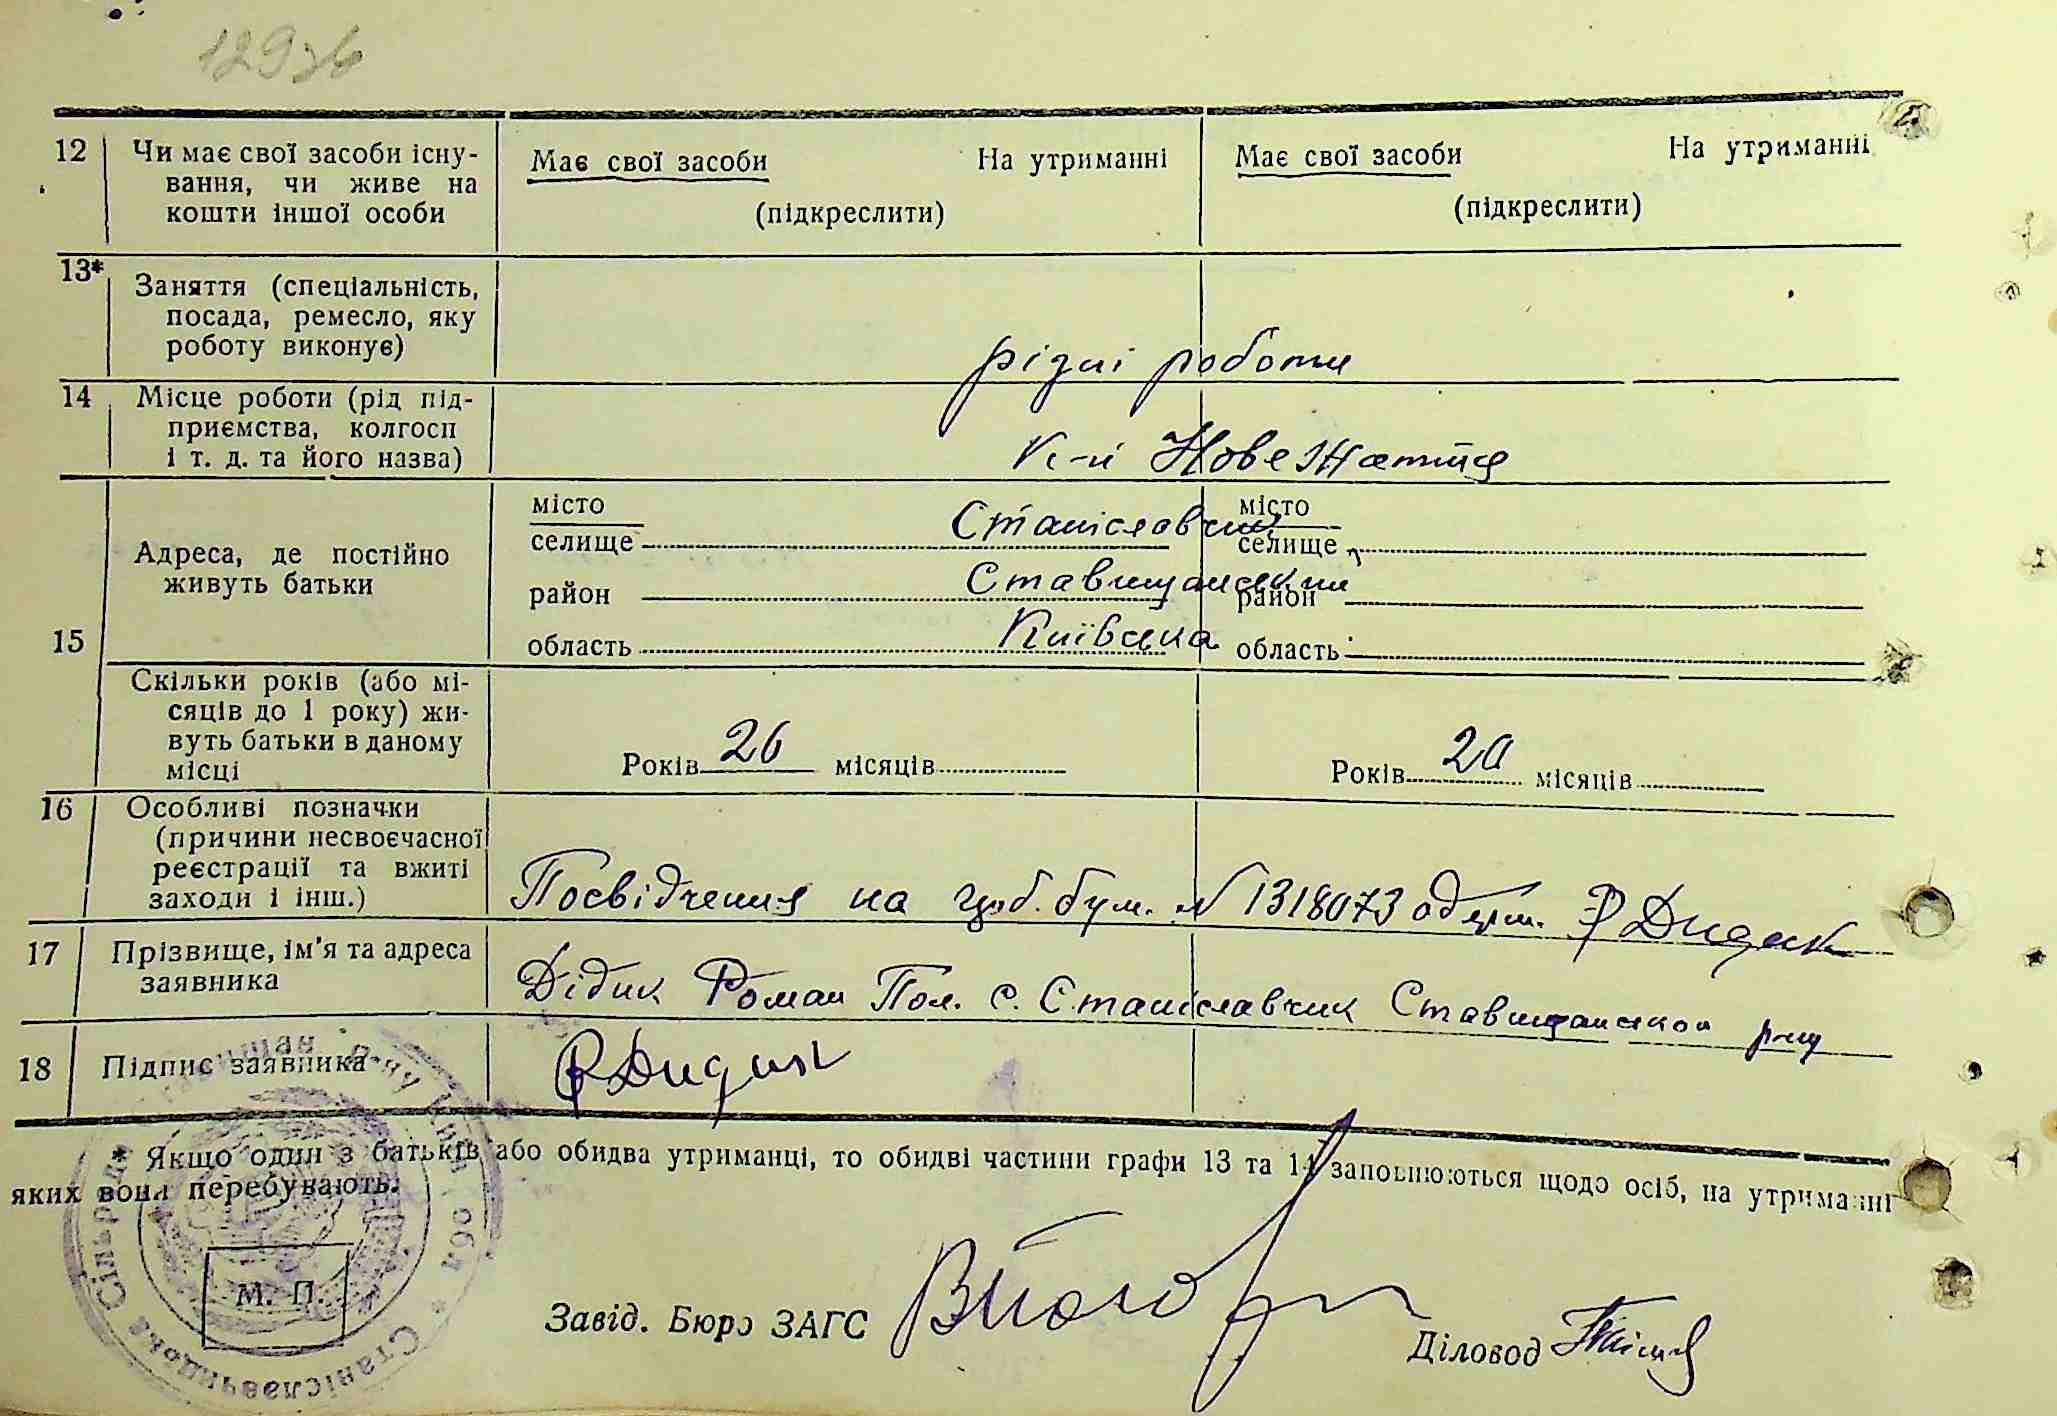 12 Чи має свої засоби існу-
вання, чи живе на
кошти іншої особи
Має свої засоби На утриманні
(підкреслити)
Має свої засоби На утриманні
(підкреслити)
13* Заняття (спеціальність,
посада, ремесло, яку
роботу виконує)
різні роботи
14 Місце роботи (рід під-
приємства, колгосп
і т. д. та його назва)
Нове Життя
15 Адреса, де постійно
живуть батьки
місто
селище Станіславчик
район Ставищанський
область Київська
місто
селище
район
область
Скільки років (або мі-
сяців до 1 року) жи-
вуть батьки в даному
місці
Років 26 місяців
Років 20 місяців
16 Особливі позначки
(причини несвоєчасної
реєстрації та вжиті
заходи і інш.)
Посвідчення на бум. № 1318073 одерж. Р Дидик
17 Прізвище, ім'я та адреса
заявника
Дідик Роман Пол. с. Станіславчик Ставищанского р-ну
18 Підпис заявника
Р Дидик
* Якщо один з батьків або обидва утриманці, то обидві частини графи 13 та 14 заповнюються щодо осіб, на утриманні
яких вони перебувають.
М. П.
Завід. Бюро ЗАГС
Діловод